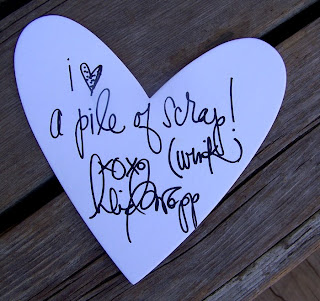 i ♥
a pile of scrap!
(wink)
xoxo